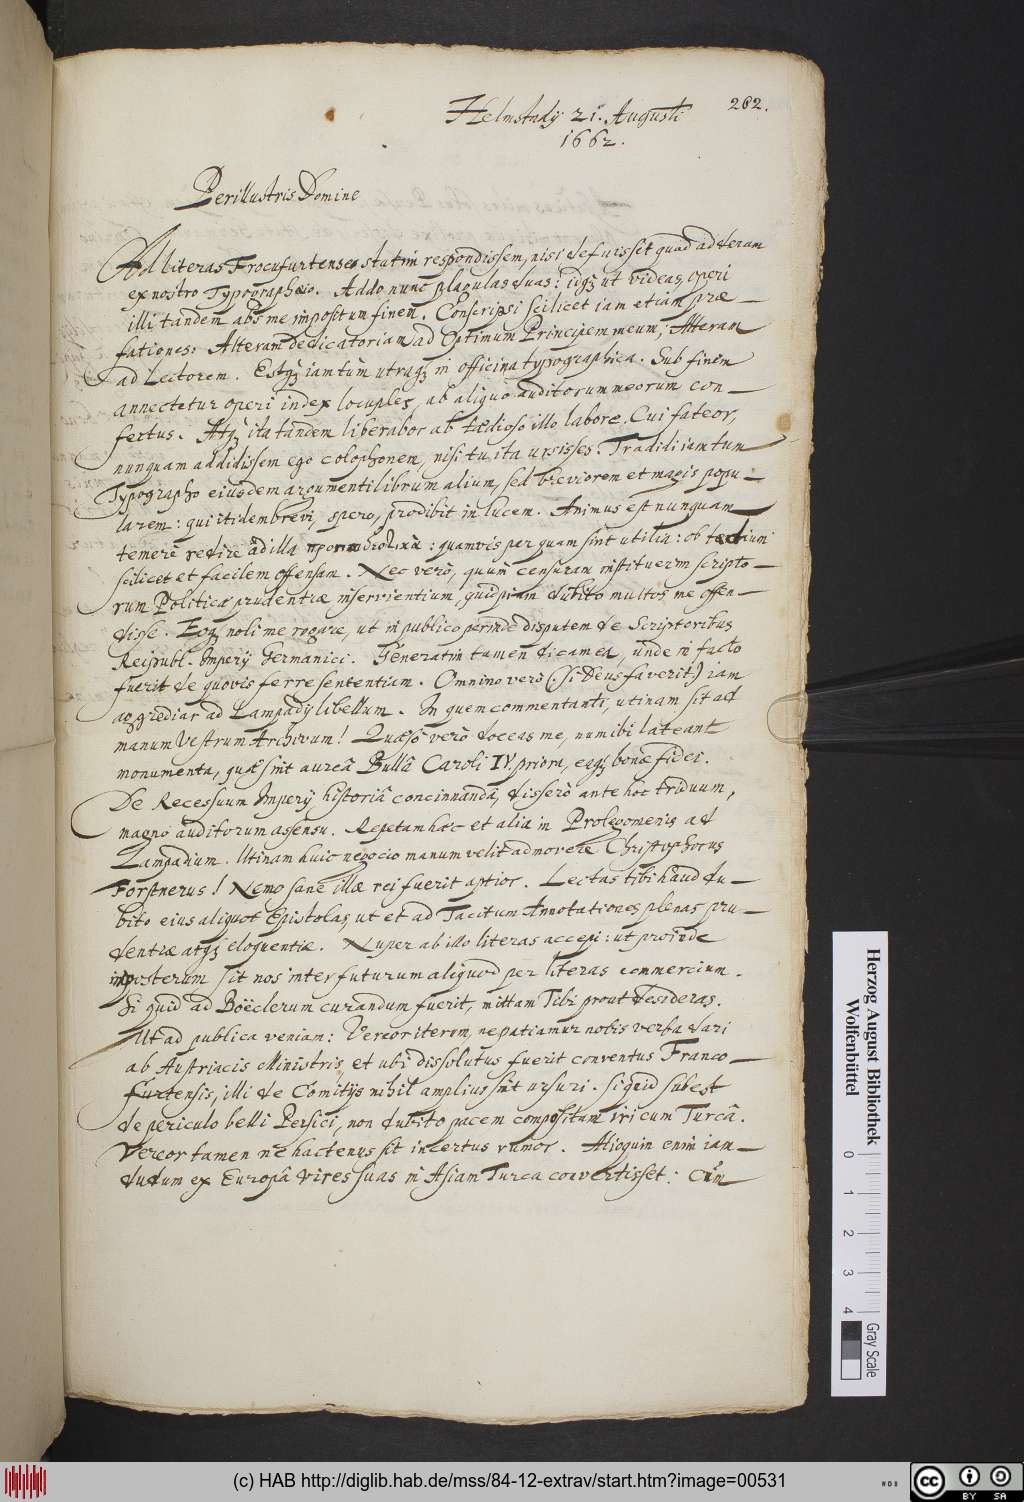 262.
Helmstadij 21. Augusti
1662.
Perillustris Domine
Ad literas Francofurtenses statim respondissem, nisi defuisset quod adderam
ex nostro Typographeio. Addo nunc plagulas duas: idq; ut videas, operi
illi tandem abs me impositum finem. Conscripsi scilicet iam etiam præ-
fationes: Alteram dedicatoriam ad Optimum Principem meum; Alteram
ad Lectorem. Estq; iam tum utraq; in officina typographica. Sub finem
annectetur operi index locuples, ab aliquo auditorum meorum con-
fectus. Atq; ita tandem liberabor ab tædioso illo labore. Cui fateor,
nunquam addidissem ego colophonem, nisi tu ita ursisses. Tradidi iam tum
Typographo eiusdem argumenti librum alium, sed breviorem et magis popu-
larem: qui itidem brevi, spero, prodibit in lucem. Animus est nunquam
temerè redire ad illa : quamvis per quam sint utilia: ob tædium
scilicet et facilem offensam. Nec verò, quum censuram instituerim scripto-
rum Politicæ prudentiæ inservientium, quidpiam dubito multos me offen-
disse. Eoq; noli me rogare, ut in publico perinde disputem de Scriptoribus
Reipubl. Imperij Germanici. Generatim tamen dicam ea, unde in facto
fuerit de quovis ferre sententiam. Omnino verò (si Deus faverit) iam
aggrediar ad Lampadij libellum. In quem commentanti, utinam sit ad
manum Vestrum Archivum! Quæsò verò doceas me, num ibi lateant
monumenta, quæ sint aureâ Bullâ Caroli IV. priora, eaq; bonæ fidei.
De Recessuum Imperij historiâ concinnandâ, disserò ante hoc triduum,
magno auditorum assensu. Repetam hæc et alia in Prolegomenis ad
Lampadium. Utinam huic negocio manum velit admovere Christophorus
Forstnerus! Nemo sane illæ rei fuerit aptior. Lectas tibi haud du-
bito eius aliquot Epistolas, ut et ad Tacitum Annotationes plenas pru-
dentiæ atq; eloquentiæ. Nuper ab illo literas accepi: ut proinde
imposterum sit nos inter futurum aliquod per literas commercium.
Si quid ad Boëclerum curandum fuerit, mittam Tibi prout desideras.
Ut ad publica veniam: Vereor iterum, ne patiamur nobis verba dari
ab Austriacis Ministris, et ubi dissolutus fuerit conventus Franco-
furtensis, illi de Comitijs nihil amplius sint ursuri. Si quid subest
de periculo belli Persici, non dubito pacem compositum iri cum Turcâ.
Vereor tamen ne hactenus sit incertus rumor. Alioquin enim iam-
dudum ex Europâ vires suas in Asiam Turca convertisset: Cùm
Herzog August Bibliothek
Wolfenbüttel
0 1 2 3 4
Gray Scale
(c) HAB http://diglib.hab.de/mss/84-12-extrav/start.htm?image=00531
cc BY SA